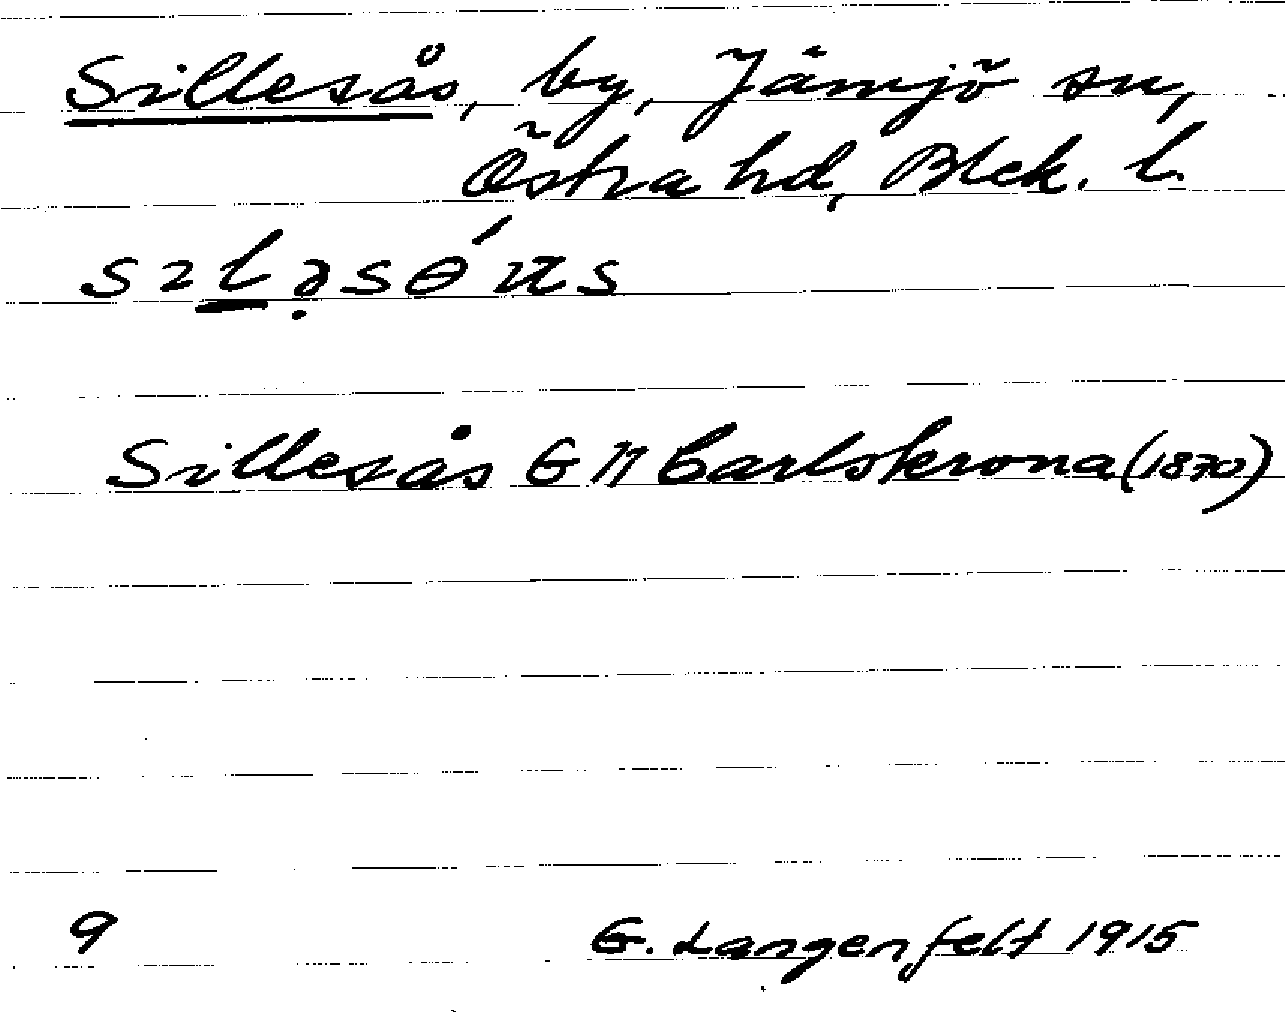 Sillesås, by, Jämjö sn,
Östra hd, Blek. l.
Sillesås GM Carlskrona (1870)
9
G. Langenfelt 1915